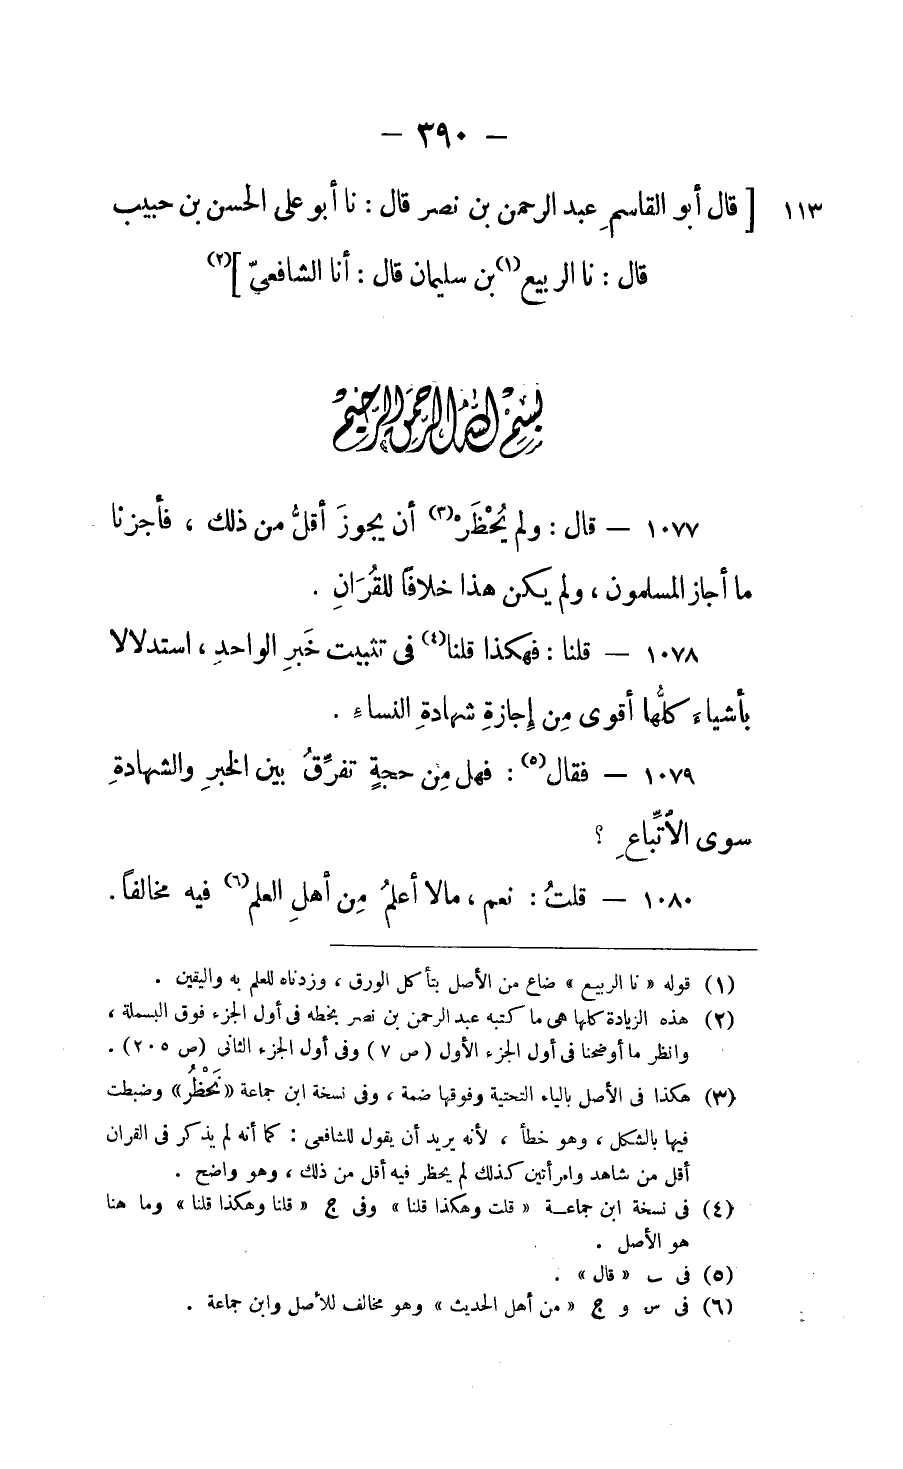 — ٣٩٠ —
١١٣ [ قال أبو القاسمِ عبد الرحمن بن نصر قال : نا أبو على الحسن بن حبيب
قال : نا الربيع(١) بن سليمان قال : أنا الشافعيّ ](٢)
بسم الله الرحمن الرحيم
١٠٧٧ — قال : ولم يُحْظَرْ(٣) أن يجوزَ أقلُّ من ذلك ، فأجزنا
ما أجاز المسلمون ، ولم يكن هذا خلافًا للقُرَانِ .
١٠٧٨ — قلنا : فهكذا قلنا(٤) فى تثبيت خَبرِ الواحدِ ، استدلالا
بأشياءَ كلُّها أقوى مِن إِجازةِ شهادةِ النساءِ .
١٠٧٩ — فقال(٥) : فهل مِن حجةٍ تفرِّقُ بين الخبرِ والشهادةِ
سوى الاُتِّباعِ ؟
١٠٨٠ — قلتُ : نعم ، مالا أعلمُ مِن أهلِ العلم(٦) فيه مخالفاً .
(١) قوله « نا الربيع » ضاع من الأصل بتأكل الورق ، وزدناه للعلم به واليقين .
(٢) هذه الزيادة كلها هى ما كتبه عبد الرحمن بن نصر بخطه فى أول الجزء فوق البسملة ،
وانظر ما أوضحنا فى أول الجزء الأول ( ص ٧ ) وفى أول الجزء الثانى ( ص ٢٠٥ ) .
(٣) هكذا فى الأصل بالياء التحتية وفوقها ضمة ، وفى نسخة ابن جماعة « نَحْظُرْ » وضبطت
فيها بالشكل ، وهو خطأ ، لأنه يريد أن يقول للشافعى : كما أنه لم يذكر فى القران
أقل من شاهد وامرأتين كذلك لم يحظر فيه أقل من ذلك ، وهو واضح .
(٤) فى نسخة ابن جماعة « قلت وهكذا قلنا » وفى ج « قلنا وهكذا قلنا » وما هنا
هو الأصل .
(٥) فى ب « قال » .
(٦) فى س و ج « من أهل الحديث » وهو مخالف للأصل وابن جماعة .